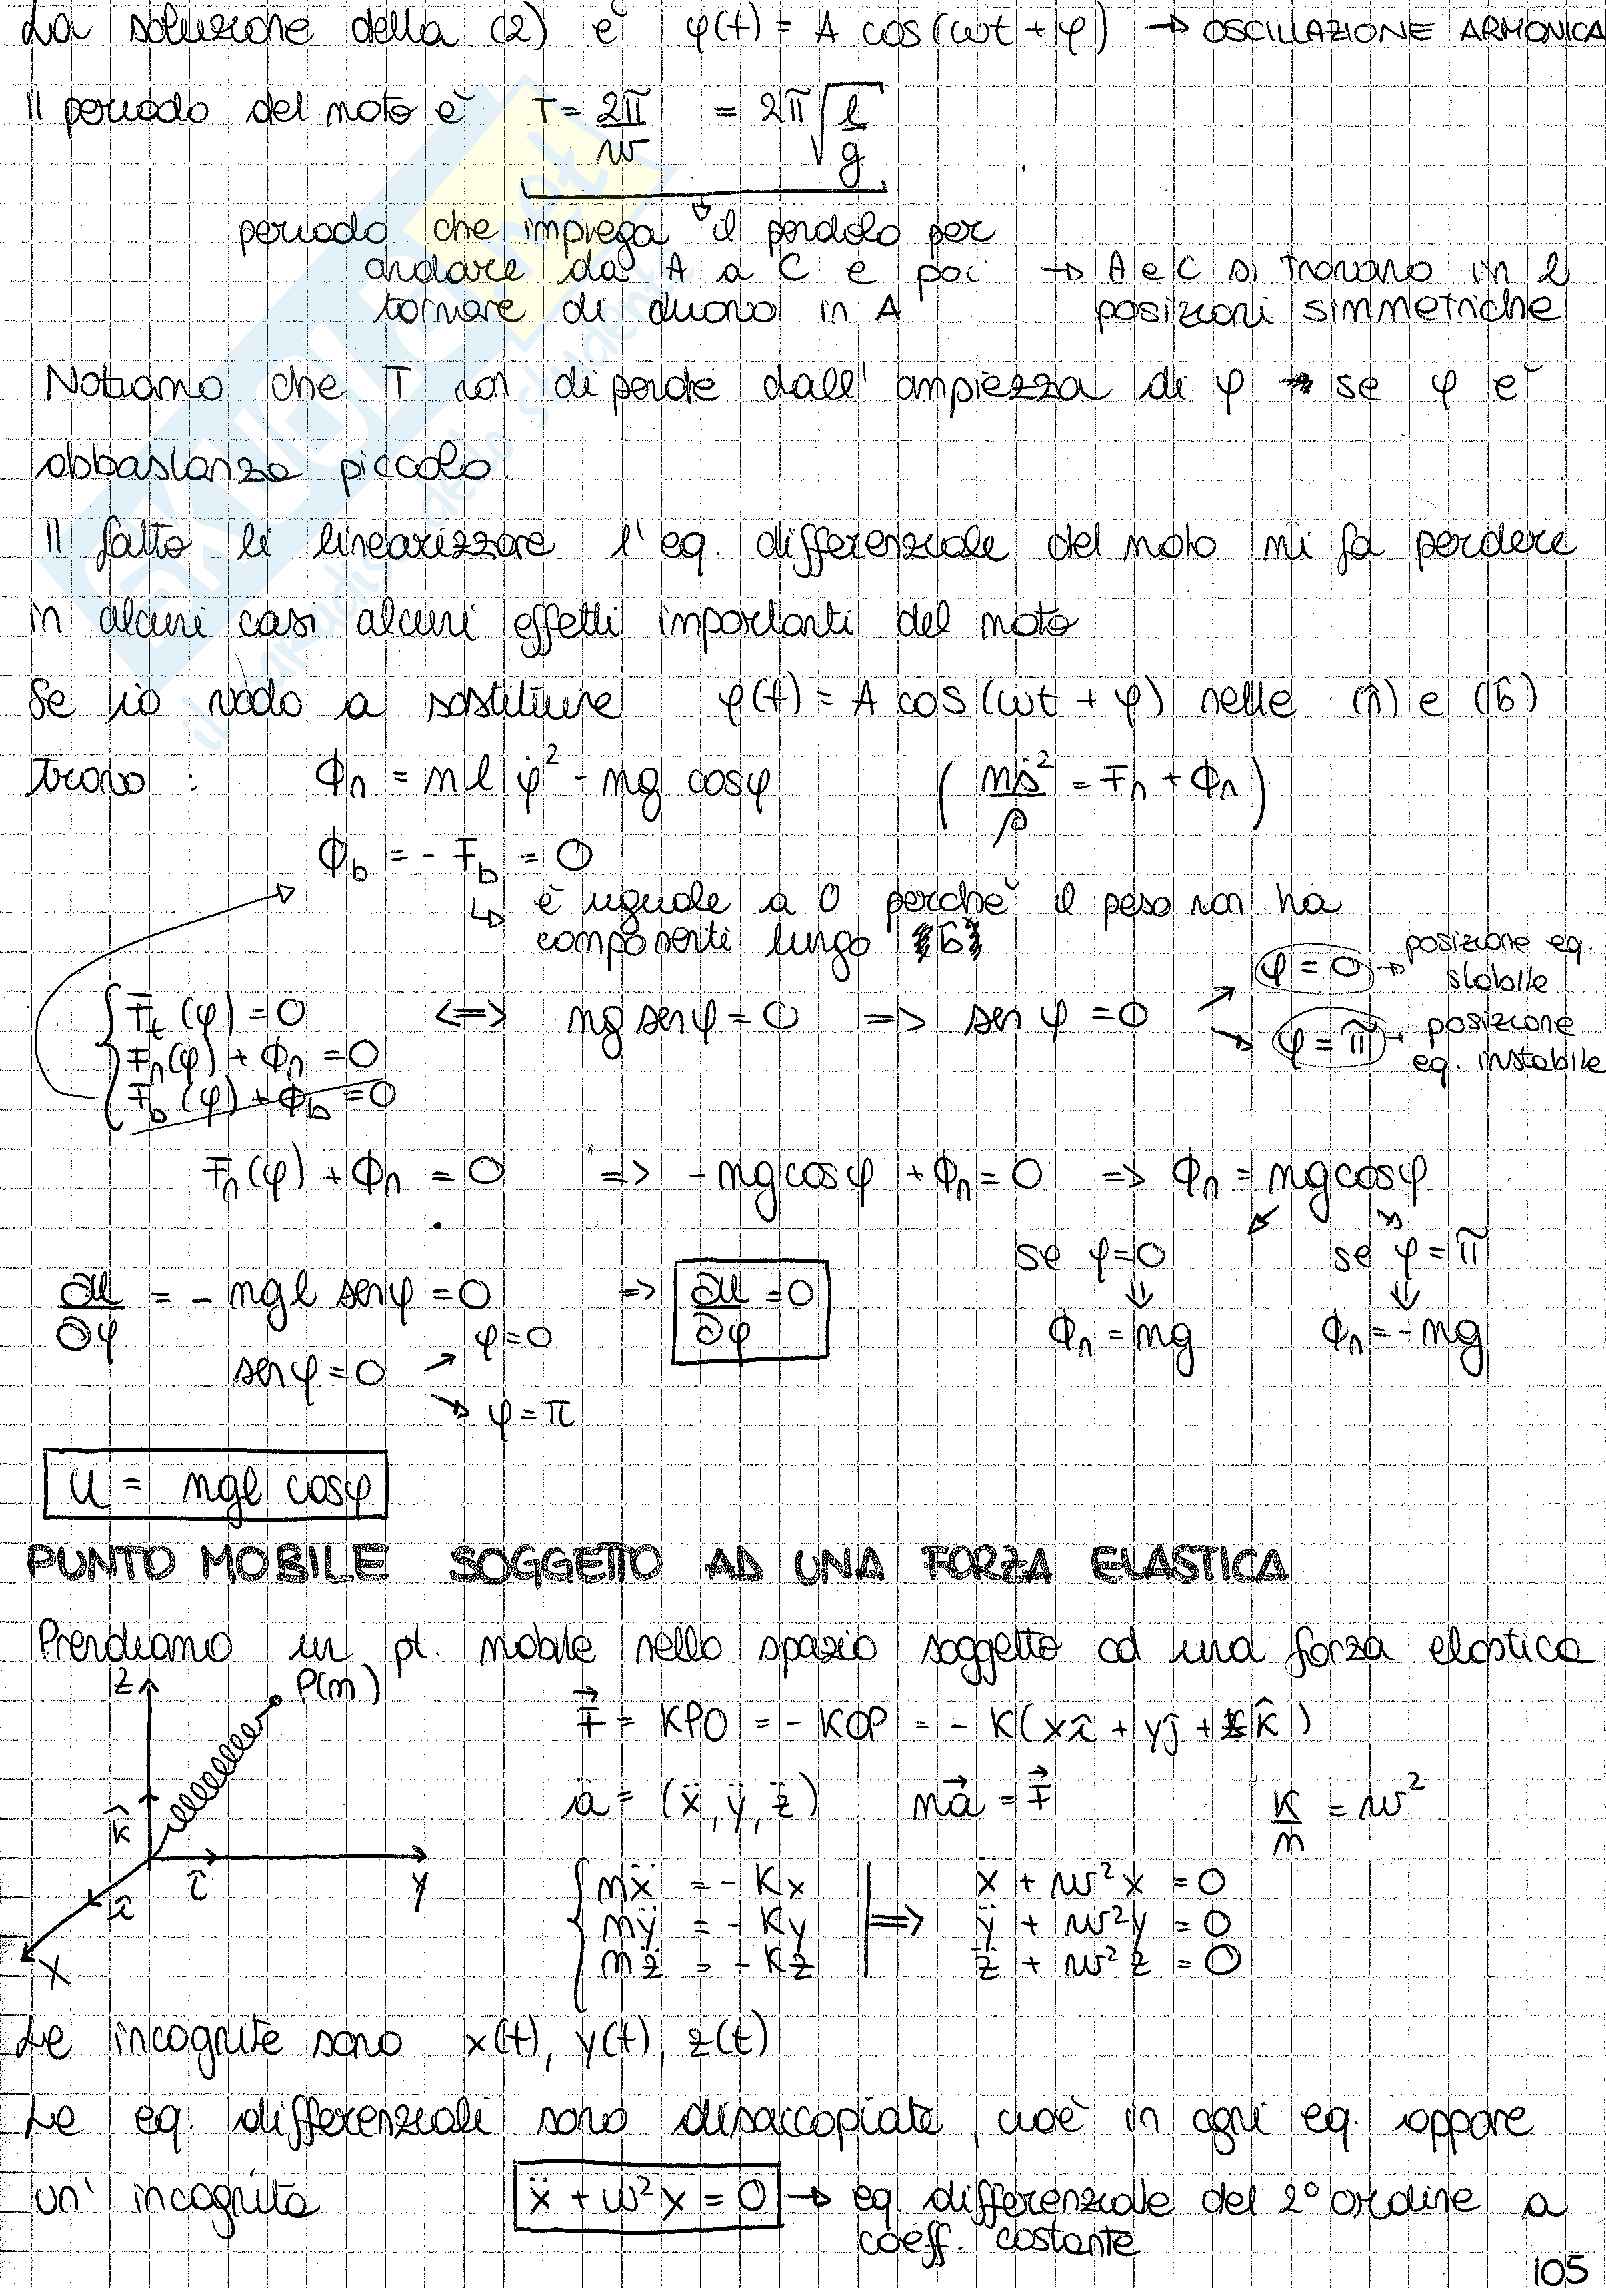 La soluzione della (2) è φ(t) = A cos(ωt + φ) → OSCILLAZIONE ARMONICA
Il periodo del moto è T = 2π/ω = 2π√(l/g)
periodo che impiega il pendolo per
andare da A a C e poi → A e C si trovano in 2
tornare di nuovo in A posizioni simmetriche
Notiamo che T non dipende dall'ampiezza di φ → se φ è
abbastanza piccolo
Il fatto di linearizzare l'eq. differenziale del moto mi fa perdere
in alcuni casi alcuni effetti importanti del moto
Se io vado a sostituire φ(t) = A cos(ωt + φ) nelle (n) e (b)
trovo : Φn = mlφ̇² - mg cosφ ( mṡ²/ρ = Fn + Φn )
Φb = - Fb = 0
↳ è uguale a 0 perché il peso non ha
componenti lungo "b"
φ = 0 → posizione eq. stabile
{ Ft (φ) = 0 <=> mg senφ = 0 => sen φ = 0
φ = π → posizione eq. instabile
Fn(φ) + Φn = 0
Fb (φ) + Φb = 0
Fn(φ) + Φn = 0 => - mg cosφ + Φn = 0 => Φn = mg cosφ
se φ=0 se φ = π
∂U/∂φ = - mgl senφ = 0 => ∂U/∂φ = 0
Φn = mg Φn = - mg
senφ = 0 φ = 0
φ = π
U = mgl cosφ
PUNTO MOBILE SOGGETTO AD UNA FORZA ELASTICA
Prendiamo un pt. mobile nello spazio soggetto ad una forza elastica
z P(m)
F⃗ = KPO = - KOP = - K(xî + yĵ + zk̂)
a = (ẍ, ÿ, z̈) ma⃗ = F⃗ K/m = ω²
k̂ y x
{ mẍ = - Kx => ẍ + ω²x = 0
mÿ = - Ky ÿ + ω²y = 0
mz̈ = - Kz z̈ + ω²z = 0
Le incognite sono x(t), y(t), z(t)
Le eq. differenziali sono disaccopiate, cioè in ogni eq. appare
un' incognita ẍ + ω²x = 0 → eq differenziale del 2° ordine a
coeff. costante
105